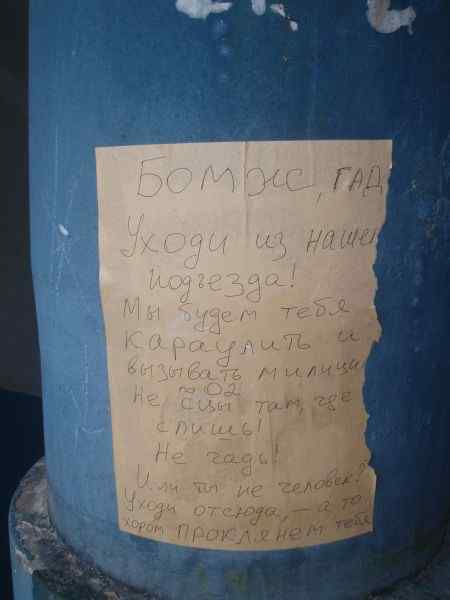 БОМЖ, ГАД
Уходи из нашег
подъезда!
Мы будем тебя
караулить и
вызывать милици
~ 02
Не сцы там, где
спишь!
Не гадь!
Или ты не человек?
Уходи отсюда, – а то
хором ПРОКЛЯНЕМ тебя